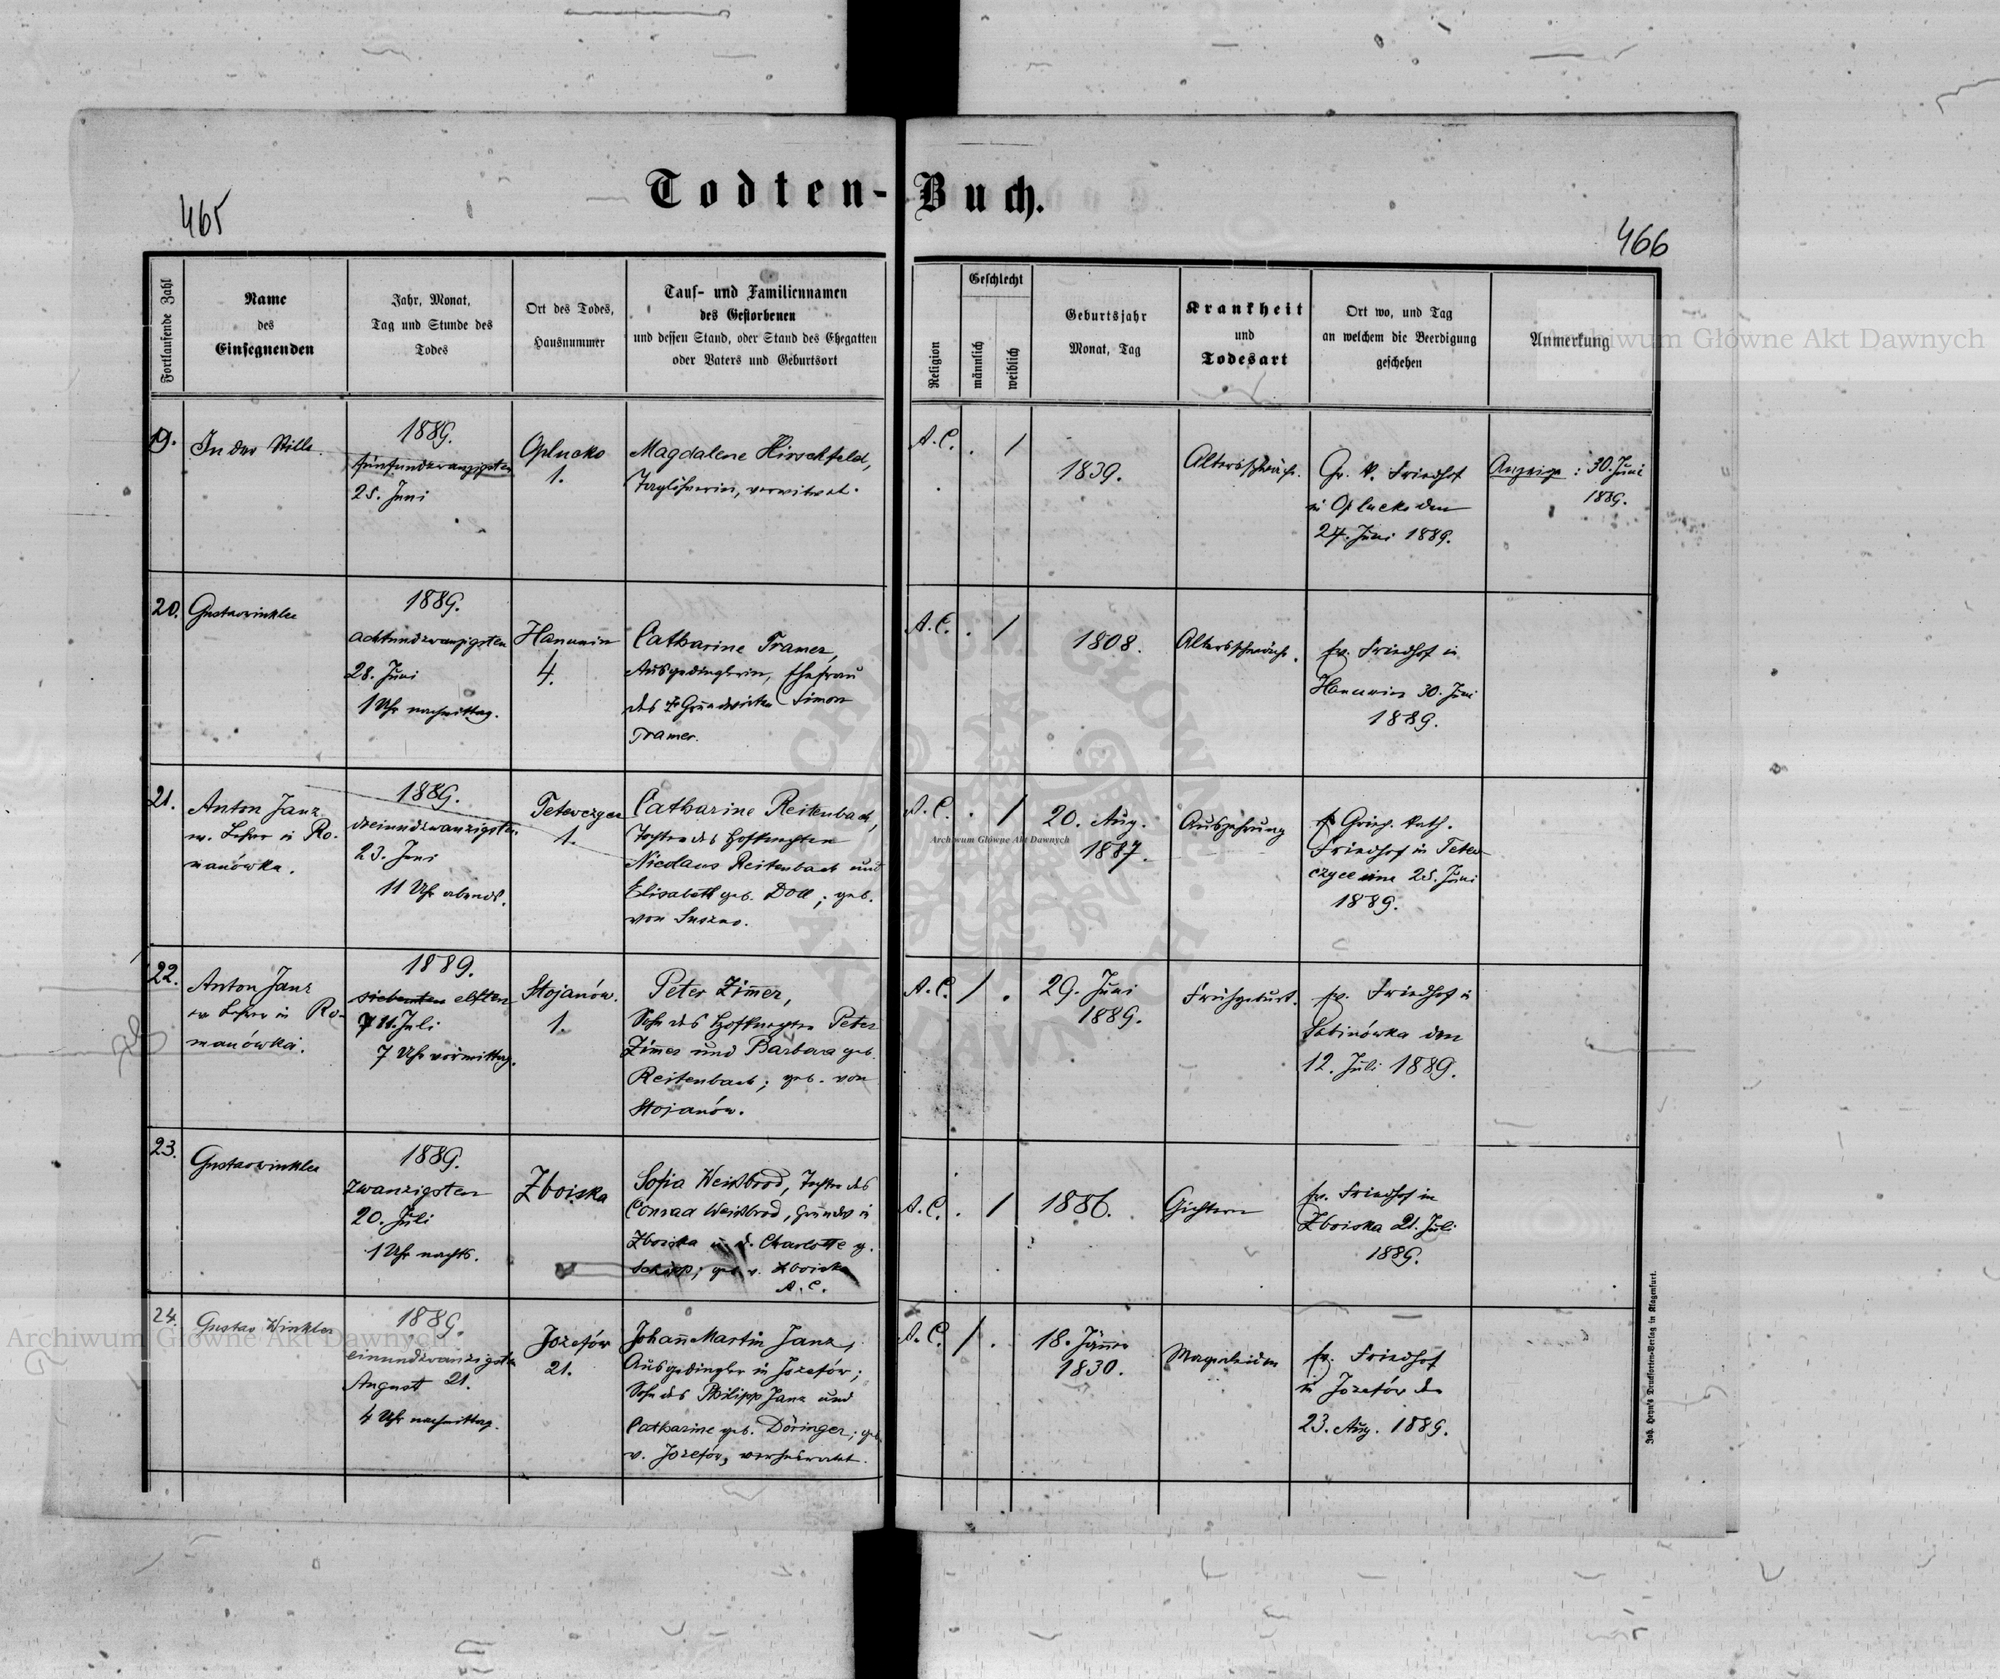 Todten-Buch.
465
466
Fortlaufende Zahl
Name
des
Einsegnenden
Jahr, Monat,
Tag und Stunde des
Todes
Ort des Todes,
Hausnummer
Tauf- und Familiennamen
des Gestorbenen
und dessen Stand, oder Stand des Ehegatten
oder Vaters und Geburtsort
Religion
Geschlecht
männlich
weiblich
Geburtsjahr
Monat, Tag
Krankheit
und
Todesart
Ort wo, und Tag
an welchem die Beerdigung
geschehen
Anmerkung
Archiwum Główne Akt Dawnych
19.
In der Stille.
1889.
fünfundzwanzigsten
25. Juni
Oplucko
1.
Magdalene Hirschfeld,
Taglöhnerin, verwitwet.
A. C.
. /
1839.
Altersschwäche.
Gr. k. Friedhof
in Oplucko den
27. Juni 1889.
Anzeige : 30. Juni
1889.
20.
Gustav Winkler
1889.
achtundzwanzigsten
28. Juni
1 Uhr nachmittag.
Hanunin
4.
Catharine Tramer,
Ausgedinglerin, Ehefrau
des Grundwirten Simon
Tramer.
A. C.
. /
1808.
Altersschwäche.
ev. Friedhof in
Hanunin 30. Juni
1889.
21.
Anton Janz
ev. Lehrer in Ro-
manówka.
1889.
dreiundzwanzigsten
23. Juni
11 Uhr abends.
Tetewczyce
1.
Catharine Reitenbach,
Tochter des Hofknechten
Nicolaus Reitenbach und
Elisabeth geb. Doll; geb.
von Suszno.
A. C.
. /
20. Aug.
1887.
Auszehrung
Griech. kath.
Friedhof in Tetew-
czyce 25. Juni
1889.
Archiwum Główne Akt Dawnych
22.
Anton Janz
ev. Lehrer in Ro-
manówka.
1889.
siebenten elften
7 11. Juli
7 Uhr vormittag.
Stojanów.
1.
Peter Zimer,
Sohn des Hofknechten Peter
Zimer und Barbara geb.
Reitenbach; geb. von
Stojanów.
A. C.
/ .
29. Juni
1889.
Frühgeburt.
ev. Friedhof in
Sabinówka den
12. Juli 1889.
23.
Gustav Winkler
1889.
zwanzigsten
20. Juli
1 Uhr nachts.
Zboiska
Sofia Weißbrod, Tochter des
Conrad Weißbrod, Grundw. in
Zboiska u. d. Charlotte g.
Schäpp; geb. v. Zboiska
A. C.
A. C.
. /
1886.
Gichtern
ev. Friedhof in
Zboiska 21. Juli
1889.
24.
Gustav Winkler
1889.
einundzwanzigsten
August 21.
4 Uhr nachmittag.
Jozefów
21.
Johan Martin Janz,
Ausgedingler in Jozefów;
Sohn des Philipp Janz und
Catharine geb. Döringer; geb.
v. Jozefów, verheiratet.
A. C.
/ .
18. Jänner
1830.
Magenleiden
ev. Friedhof
in Jozefów den
23. Aug. 1889.
Archiwum Główne Akt Dawnych
ARCHIWUM GŁÓWNE AKT DAWNYCH
Joh. Heyn's Drucksorten-Verlag in Klagenfurt.